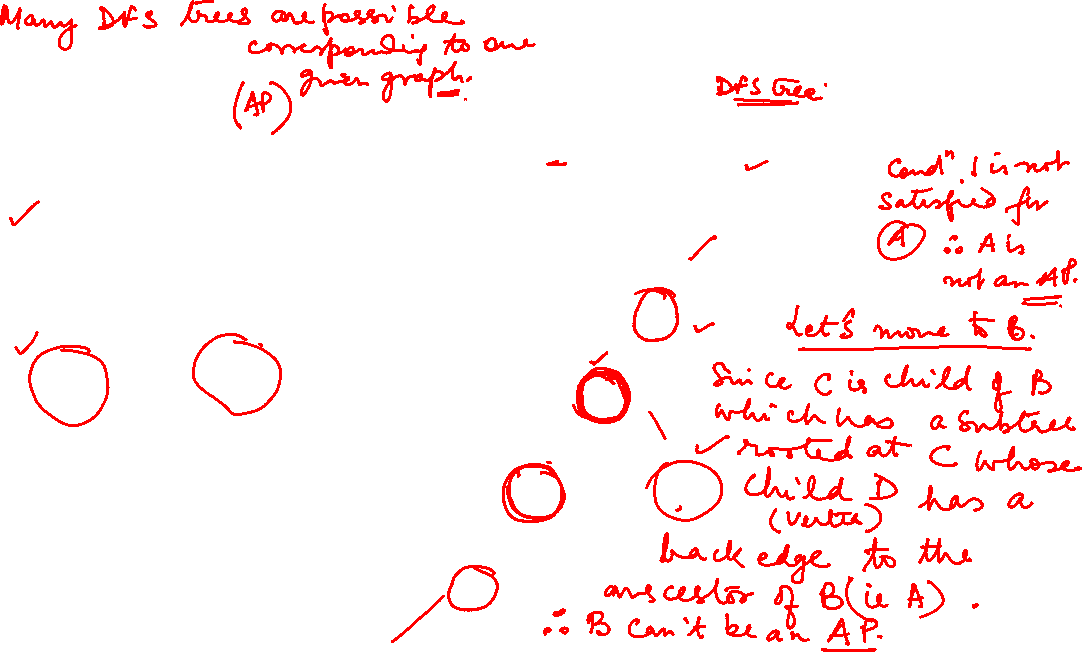 Many DFS trees are possible
corresponding to one
given graph.
(AP)
DFS tree
Condn. 1 is not
satisfied for
A ∴ A is
not an AP.
Let's move to B.
Since C is child of B
which has a subtree
rooted at C whose
child D has a
(vertex)
back edge to the
ancestor of B (ie A).
∴ B can't be an AP.